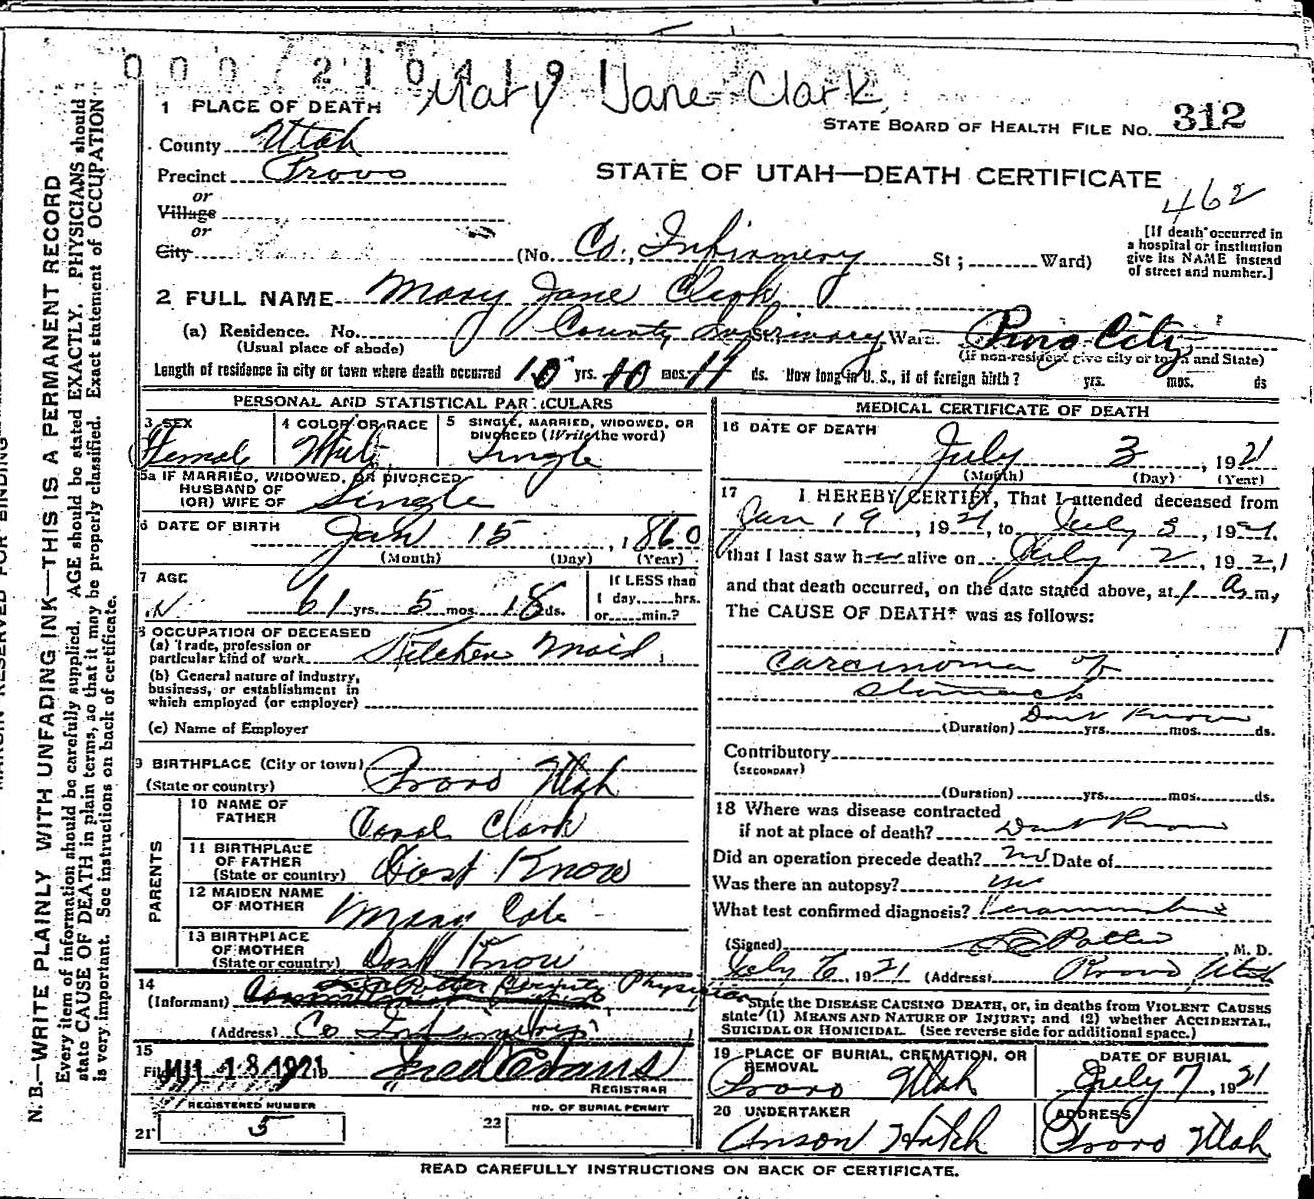 0 0 0 7 2 1 0 4 1 9 1
Mary Jane Clark
1 PLACE OF DEATH
STATE BOARD OF HEALTH FILE NO. 312
County Utah
Precinct Provo
STATE OF UTAH—DEATH CERTIFICATE
462
or
Village
or
City (No. Co. Infirmery St; Ward)
[If death occurred in
a hospital or institution
give its NAME instead
of street and number.]
2 FULL NAME Mary Jane Clark
(a) Residence. No. County Infirmary Ward. Provo City
(Usual place of abode) (If non-resident give city or town and State)
Length of residence in city or town where death occurred 10 yrs. 10 mos. ds. How long in U. S., if of foreign birth? yrs. mos. ds
PERSONAL AND STATISTICAL PARTICULARS
3 SEX
Female
4 COLOR OR RACE
5 SINGLE, MARRIED, WIDOWED, OR
DIVORCED (Write the word)
Single
5a IF MARRIED, WIDOWED, OR DIVORCED
HUSBAND OF
(OR) WIFE OF Single
6 DATE OF BIRTH Jan 15, 1860
(Month) (Day) (Year)
7 AGE
61 yrs. 5 mos. 18 ds.
If LESS than
1 day hrs.
or min.?
8 OCCUPATION OF DECEASED
(a) Trade, profession or
particular kind of work Kitchen Maid
(b) General nature of industry,
business, or establishment in
which employed (or employer)
(c) Name of Employer
9 BIRTHPLACE (City or town)
(State or country) Provo Utah
PARENTS
10 NAME OF
FATHER Clark
11 BIRTHPLACE
OF FATHER
(State or country) Dont Know
12 MAIDEN NAME
OF MOTHER
13 BIRTHPLACE
OF MOTHER
(State or country) Dont Know
14
(Informant) Potter County Physician
(Address) Co Infirmary
15
Filed JUL 18 1921 Fred Evans
REGISTRAR
REGISTERED NUMBER
21 5
NO. OF BURIAL PERMIT
22
MEDICAL CERTIFICATE OF DEATH
16 DATE OF DEATH
July 3, 1921
(Month) (Day) (Year)
17 I HEREBY CERTIFY, That I attended deceased from
Jan 19, 1921, to July 3, 1921,
that I last saw her alive on July 2, 1921
and that death occurred, on the date stated above, at 1 a m,
The CAUSE OF DEATH* was as follows:
Carcinoma of
Stomach
(Duration) Dont Know yrs. mos. ds.
Contributory
(SECONDARY)
(Duration) yrs. mos. ds.
18 Where was disease contracted
if not at place of death? Dont Know
Did an operation precede death? no Date of
Was there an autopsy?
What test confirmed diagnosis?
(Signed) Potter M. D.
July 6, 1921 (Address) Provo Utah
*State the DISEASE CAUSING DEATH, or, in deaths from VIOLENT CAUSES
state (1) MEANS AND NATURE OF INJURY; and (2) whether ACCIDENTAL,
SUICIDAL OR HOMICIDAL. (See reverse side for additional space.)
19 PLACE OF BURIAL, CREMATION, OR
REMOVAL
Provo Utah
DATE OF BURIAL
July 7, 1921
20 UNDERTAKER
Anson Hatch
ADDRESS
Provo Utah
READ CAREFULLY INSTRUCTIONS ON BACK OF CERTIFICATE.
MARGIN RESERVED FOR BINDING
N. B.—WRITE PLAINLY WITH UNFADING INK—THIS IS A PERMANENT RECORD
Every item of information should be carefully supplied. AGE should be stated EXACTLY. PHYSICIANS should
state CAUSE OF DEATH in plain terms, so that it may be properly classified. Exact statement of OCCUPATION
is very important. See instructions on back of certificate.